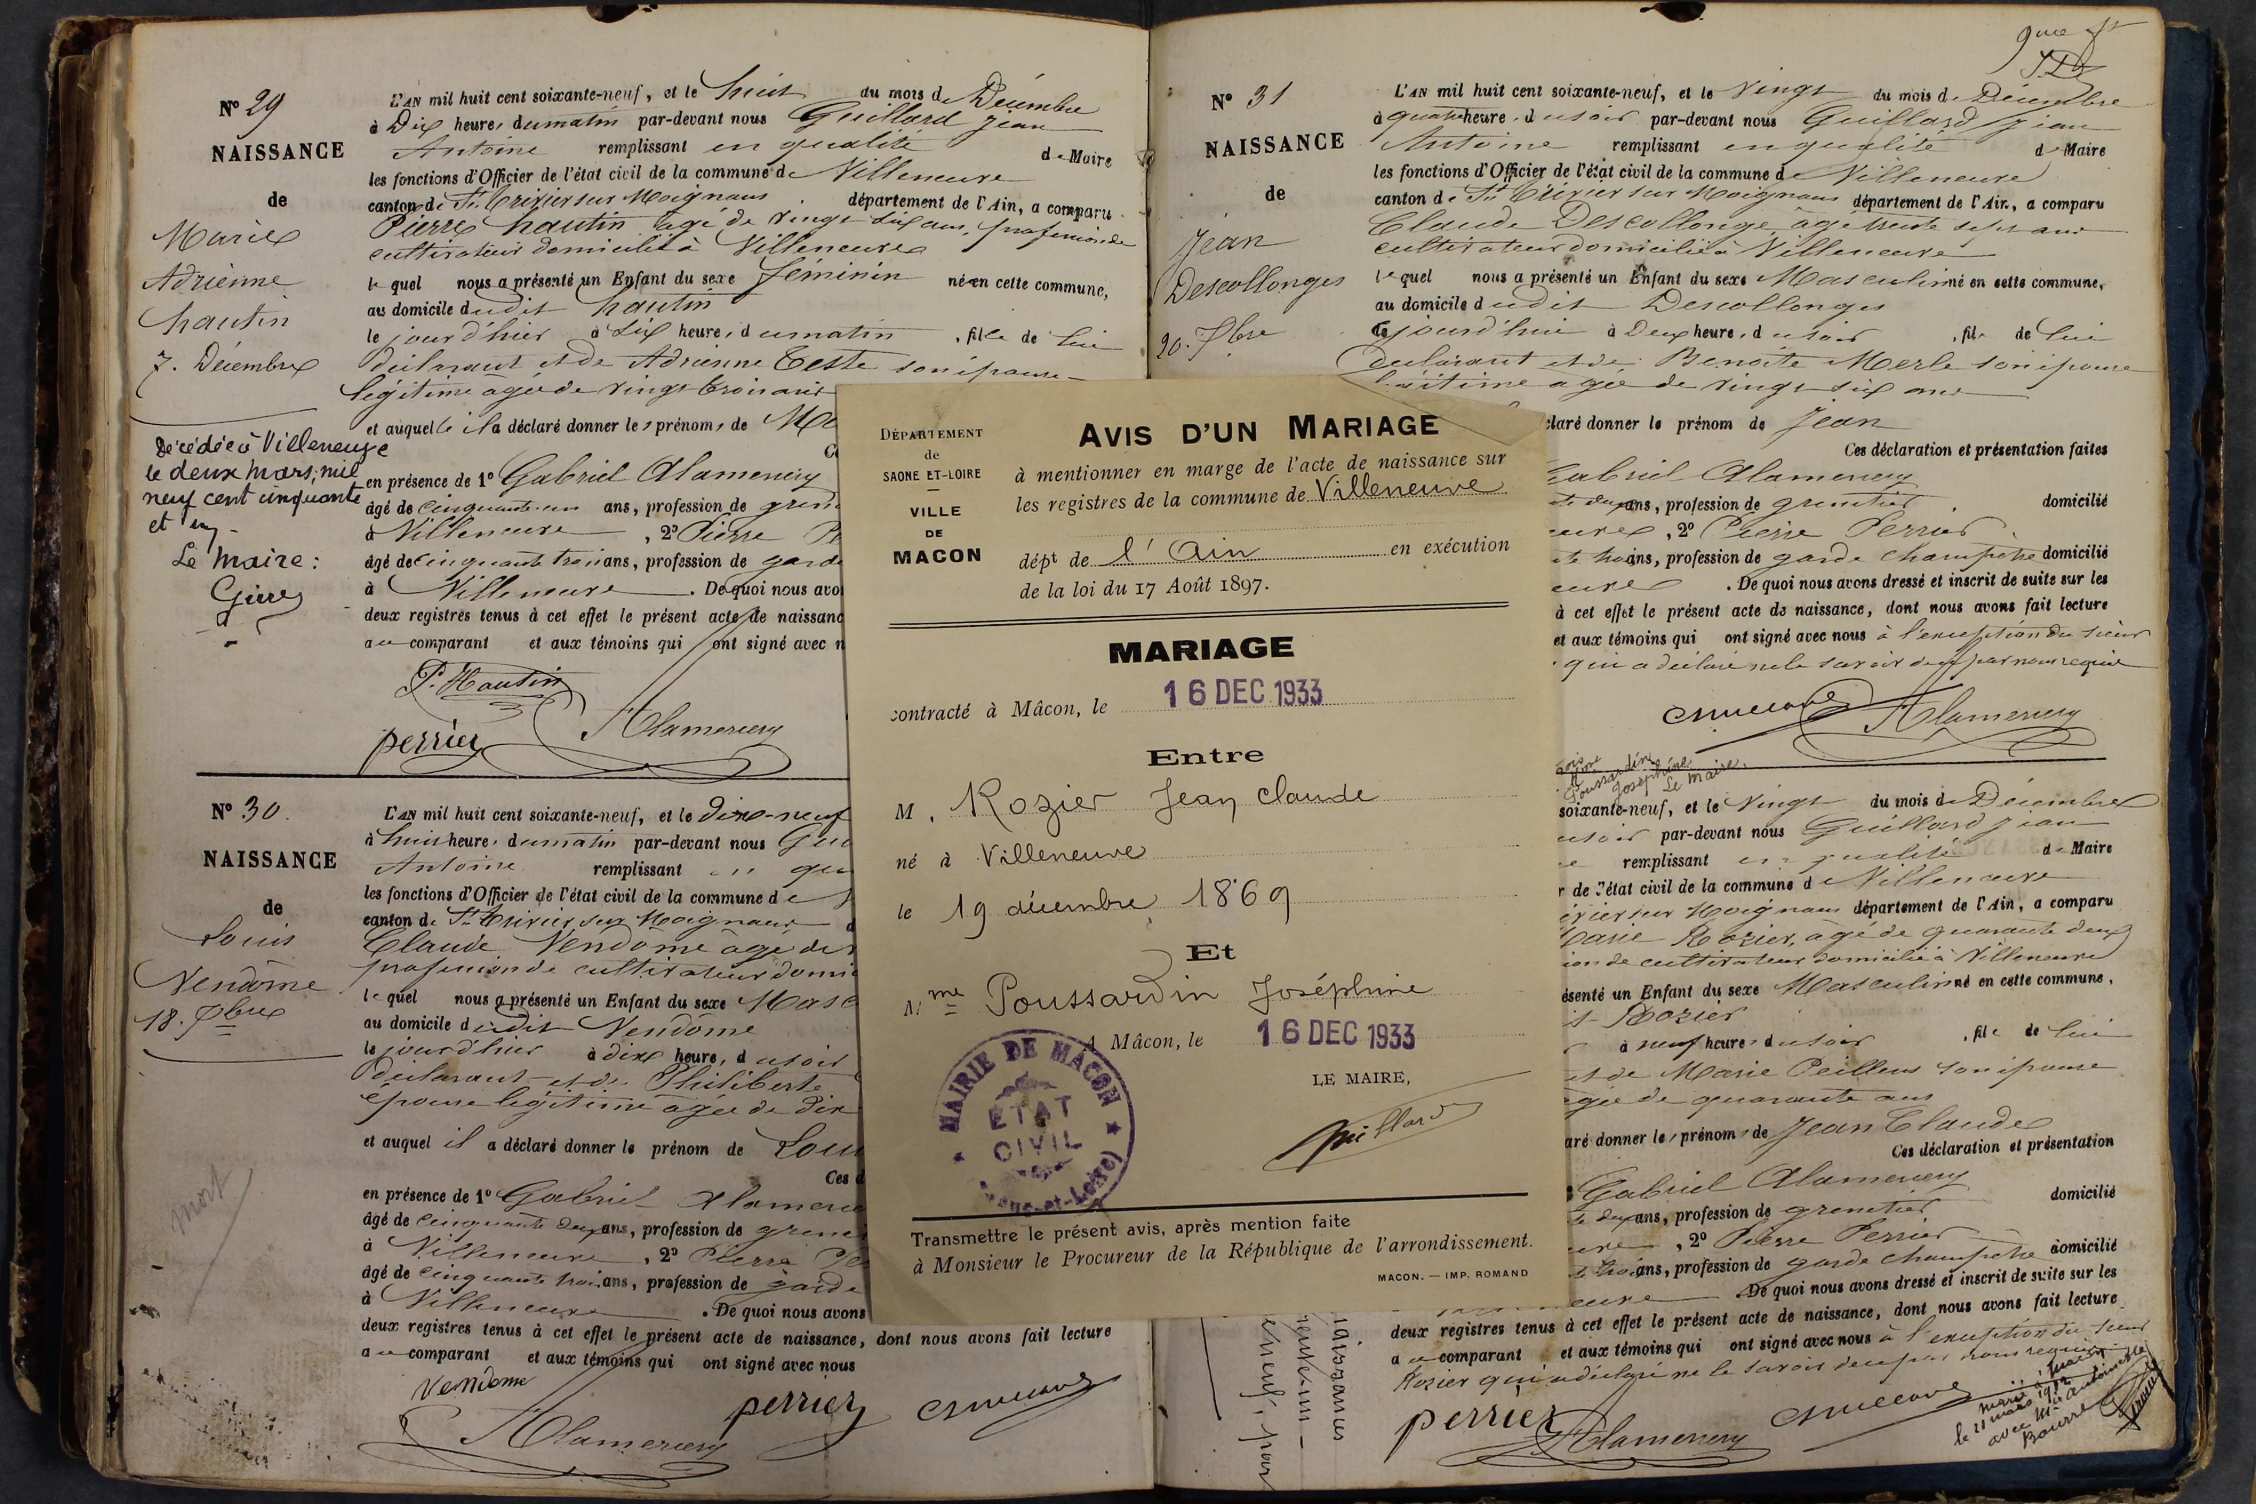 N° 29
NAISSANCE
de
Marie
Adrienne
hautin
7. Décembre
Décédée à Villeneuve
le deux mars, mil
neuf cent cinquante
et un
Le Maire :
L'AN mil huit cent soixante-neuf, et le huit du mois de Décembre
à Dix heures du matin par-devant nous Guillard Jean
Antoine remplissant en qualité de Maire
les fonctions d'Officier de l'état civil de la commune de Villeneuve
canton de St Trivier sur Moignans département de l'Ain, a comparu
Pierre hautin âgé de vingt six ans, profession de
cultivateur domicilié à Villeneuve
lequel nous a présenté un Enfant du sexe féminin née en cette commune,
au domicile dudit hautin
le jour d'hier à six heures du matin, fille de lui
déclarant et de Adrienne Teste son épouse
légitime âgée de vingt trois ans
et auquel il a déclaré donner les prénoms de
en présence de 1° Gabriel Alamercery
âgé de cinquante un ans, profession de
à Villeneuve, 2° Pierre
âgé de cinquante trois ans, profession de garde
à Villeneuve. De quoi nous avo
deux registres tenus à cet effet le présent acte de naissanc
au comparant et aux témoins qui ont signé avec n
P. Hautin
perrier Alamercery
N° 30.
NAISSANCE
de
Louis
Vendôme
18. Xbre
mort
L'AN mil huit cent soixante-neuf, et le dix-neuf
à huit heures du matin par-devant nous
Antoine remplissant en
les fonctions d'Officier de l'état civil de la commune de
canton de St Trivier sur Moignans
Claude Vendôme âgé de
profession de cultivateur
lequel nous a présenté un Enfant du sexe
au domicile dudit Vendôme
le jour d'hier à dix heures du soir
déclarant et de Philiberte
épouse légitime âgée de dix
et auquel il a déclaré donner le prénom de
Ces d
en présence de 1° Gabriel
âgé de cinquante deux ans, profession de
à Villeneuve, 2° Pierre
âgé de cinquante trois ans, profession de garde
à Villeneuve. De quoi nous avons
deux registres tenus à cet effet le présent acte de naissance, dont nous avons fait lecture
au comparant et aux témoins qui ont signé avec nous
Vendome
Alamercery perrier
DÉPARTEMENT
de
SAONE ET-LOIRE
VILLE
DE
MACON
AVIS D'UN MARIAGE
à mentionner en marge de l'acte de naissance sur
les registres de la commune de Villeneuve
dépt de l'Ain en exécution
de la loi du 17 Août 1897.
MARIAGE
contracté à Mâcon, le 16 DEC 1933
Entre
M. Rozier Jean Claude
né à Villeneuve
le 19 décembre 1869
Et
Mme Poussardin Joséphine
A Mâcon, le 16 DEC 1933
LE MAIRE,
MAIRIE DE MACON
ETAT
CIVIL
Transmettre le présent avis, après mention faite
à Monsieur le Procureur de la République de l'arrondissement.
MACON. — IMP. ROMAND
N° 31
NAISSANCE
de
Jean
Descollonges
20. Xbre
L'AN mil huit cent soixante-neuf, et le Vingt du mois de Décembre
à quatre heures du soir par-devant nous Guillard Jean
Antoine remplissant en qualité de Maire
les fonctions d'Officier de l'état civil de la commune de Villeneuve
canton de St Trivier sur Moignans département de l'Ain, a comparu
Claude Descollonge, âgé trente sept ans
cultivateur domicilié à Villeneuve
lequel nous a présenté un Enfant du sexe Masculin né en cette commune,
au domicile dudit Descollonges
ce jourd'hui à Deux heures du soir, fils de lui
déclarant et de Benoite Merle son épouse
légitime âgée de vingt six ans
claré donner le prénom de Jean
Ces déclaration et présentation faites
Gabriel Alamercery
ans, profession de grenetier domicilié
, 2° Pierre Perrier
ans, profession de garde champêtre domicilié
. De quoi nous avons dressé et inscrit de suite sur les
à cet effet le présent acte de naissance, dont nous avons fait lecture
et aux témoins qui ont signé avec nous à l'exception du sieur
qui a déclaré ne le savoir de ce par nous requis
Alamercery
Poussardin
Joséphine
Le Maire.
soixante-neuf, et le Vingt du mois de Décembre
du soir par-devant nous Guillard Jean
remplissant en qualité de Maire
r de l'état civil de la commune de Villeneuve
sur Moignans département de l'Ain, a comparu
Marie Rozier, âgé de quarante deux
ion de cultivateur domicilié à Villeneuve
ésenté un Enfant du sexe Masculin né en cette commune,
Rozier
à neuf heures du soir, fils de lui
et de Marie Peilleus son épouse
âgée de quarante ans
aré donner les prénoms de Jean Claude
Ces déclaration et présentation
Gabriel Alamercery domicilié
ans, profession de grenetier
, 2° Pierre Perrier
ans, profession de garde champêtre domicilié
. De quoi nous avons dressé et inscrit de suite sur les
deux registres tenus à cet effet le présent acte de naissance, dont nous avons fait lecture
au comparant et aux témoins qui ont signé avec nous à l'exception du sieur
Rozier qui a déclaré ne le savoir de ce par nous requis
perrier Alamercery
marié à Macon
le 21 mars 1912
avec Mlle Antoinette
naissances